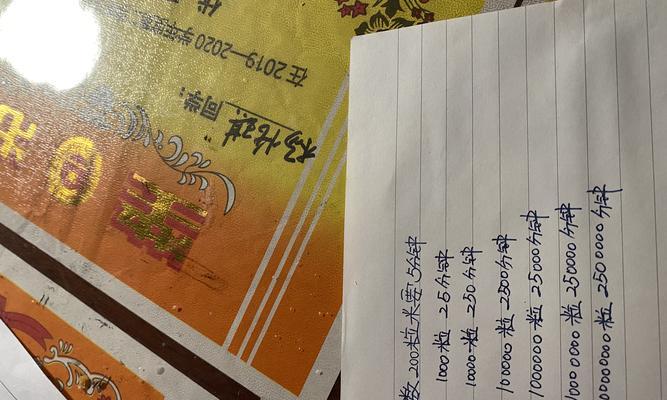 数200粒米要5分钟
1000粒 25分钟
10000粒 250分钟
100000粒 2500分钟
1000000粒 25000分钟
10000000粒 250000分钟
00000000粒 2500000分钟
同学:
在2019—2020学年度第